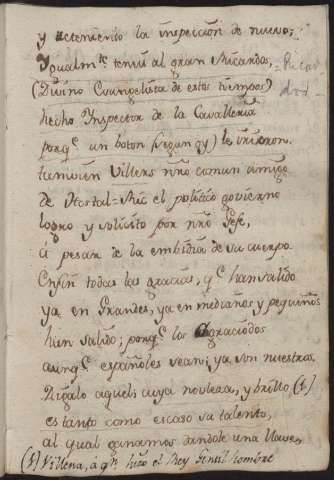 y reteniendo la inspeccion de nuevo;
Ygualmte. tenéis al gran Ricardos,
(Divino Evangelista de estos tiempos)
hecho Inspector de la Cavalleria
porqe. un boton (segun oy) le
tamvien Villers nro comun amigo
de el político govierno
logro y solicito por nro Gefe,
a pesar de la embidia de su cuerpo.
Enfin todas las gracias, qe. han salido
ya en Grandes, ya en medianos y pequeños
han salido; porqe. los agraciados
aunqe. españoles sean; ya son nuestros.
Digalo aquel; cuya nobleza, y brillo (1)
es tanto como escaso su talento,
al qual ganamos dandole una llave,
(1) Villena, á qn. hizo el Rey Gentil hombre
Ricar
dos